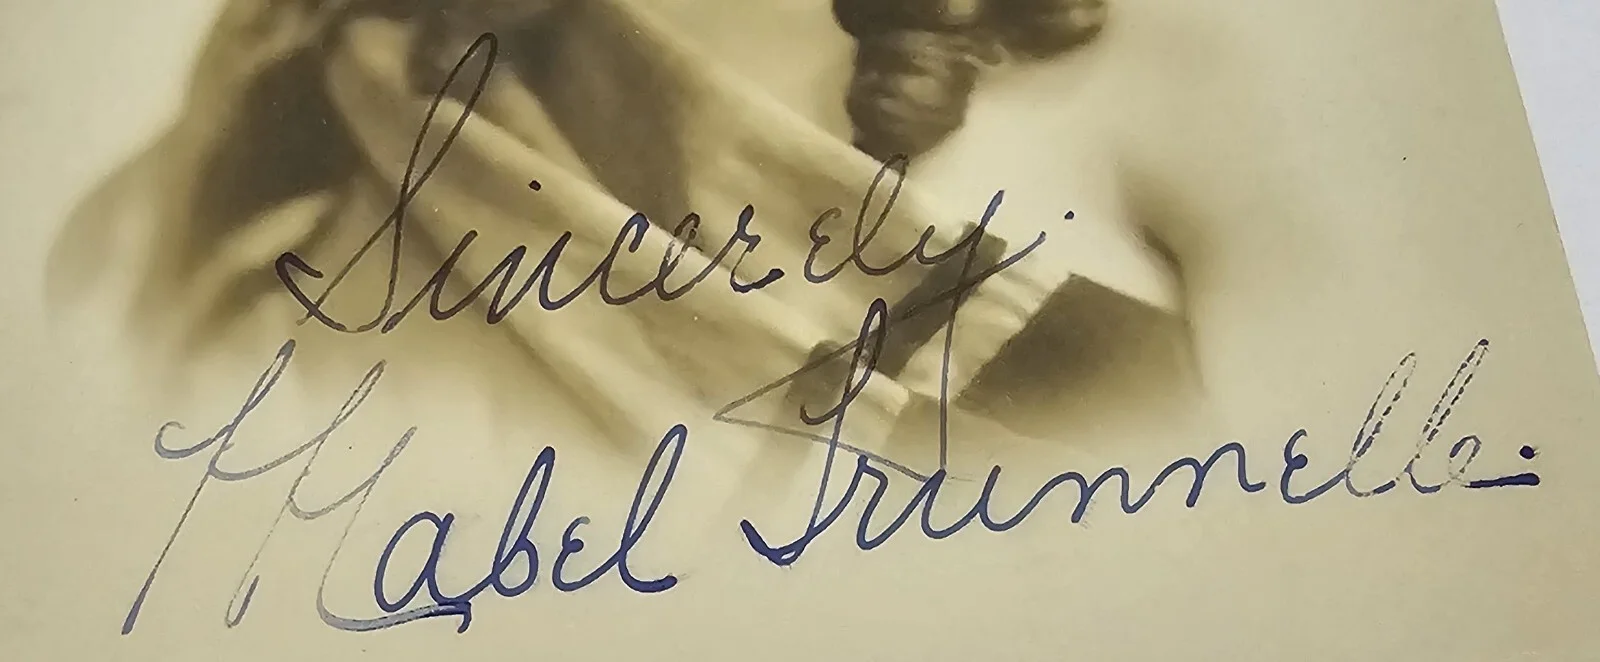 Sincerely.
Mabel Trunnelle.